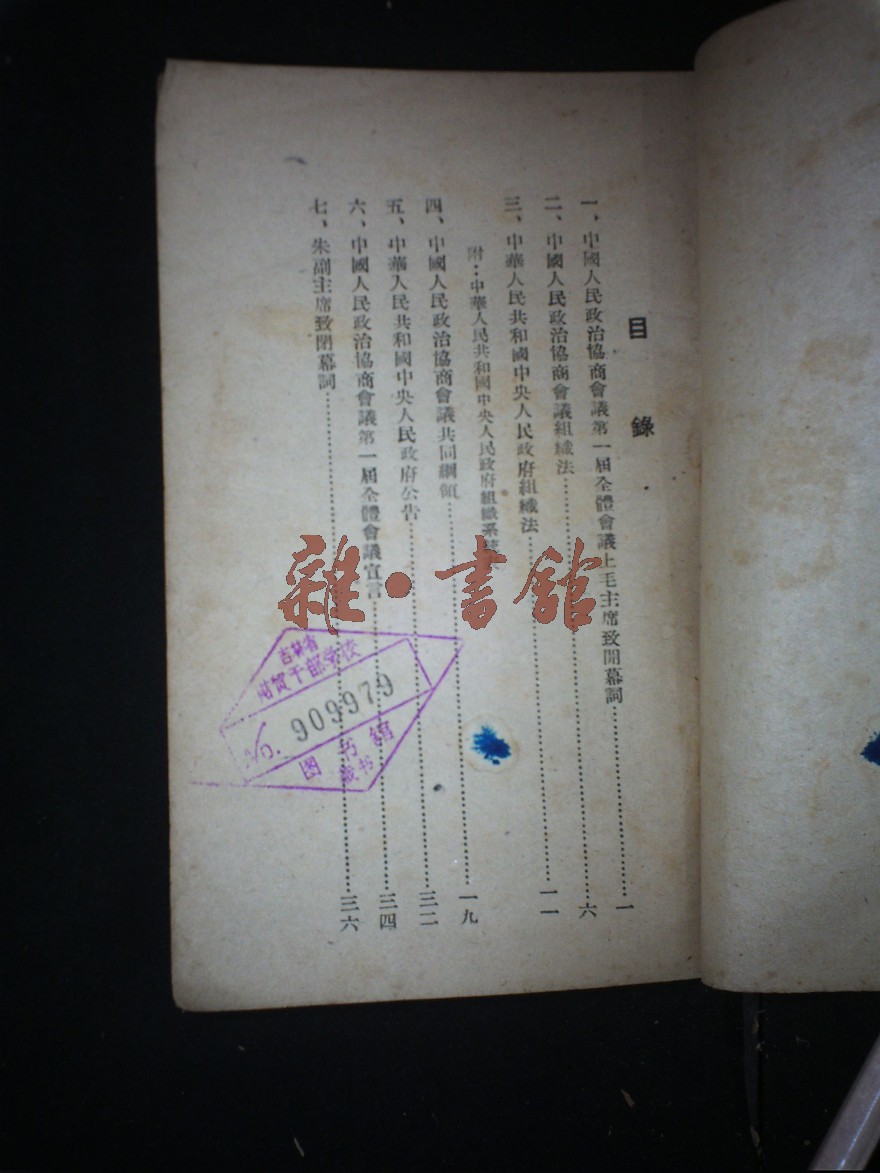 目 錄
一、中國人民政治協商會議第一屆全體會議上毛主席致開幕詞……一
二、中國人民政治協商會議組織法……六
三、中華人民共和國中央人民政府組織法……一一
附：中華人民共和國中央人民政府組織系
四、中國人民政治協商會議共同綱領……一九
五、中華人民共和國中央人民政府公告……三二
六、中國人民政治協商會議第一屆全體會議宣言……三四
七、朱副主席致閉幕詞……三六
雜·書館
吉林省
财贸干部学校
No. 909979
图书馆
藏书